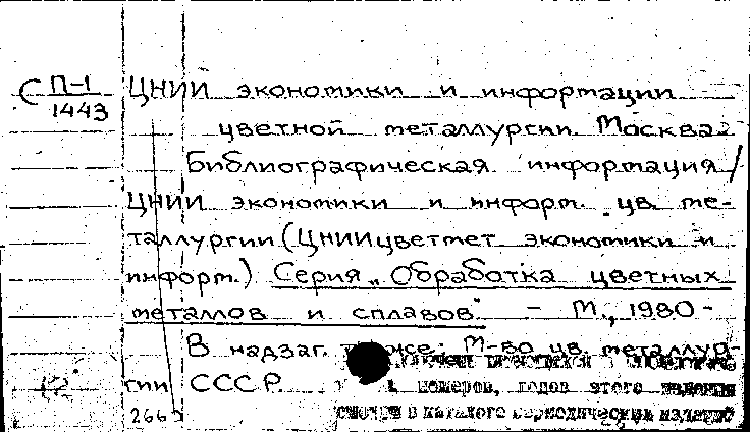 С П-1
1443
ЦНИИ экономики и информации
цветной металлургии. Москва.
Библиографическая информация /
ЦНИИ экономики и информ. цв. ме-
таллургии (ЦНИИцветмет экономики и
информ.) Серия „Обработка цветных
металлов и сплавов" - М., 1980-
В надзаг. же: М-во цв. металлур-
гии СССР.
номеров, годов этого издания
смотри в каталоге периодических изданий